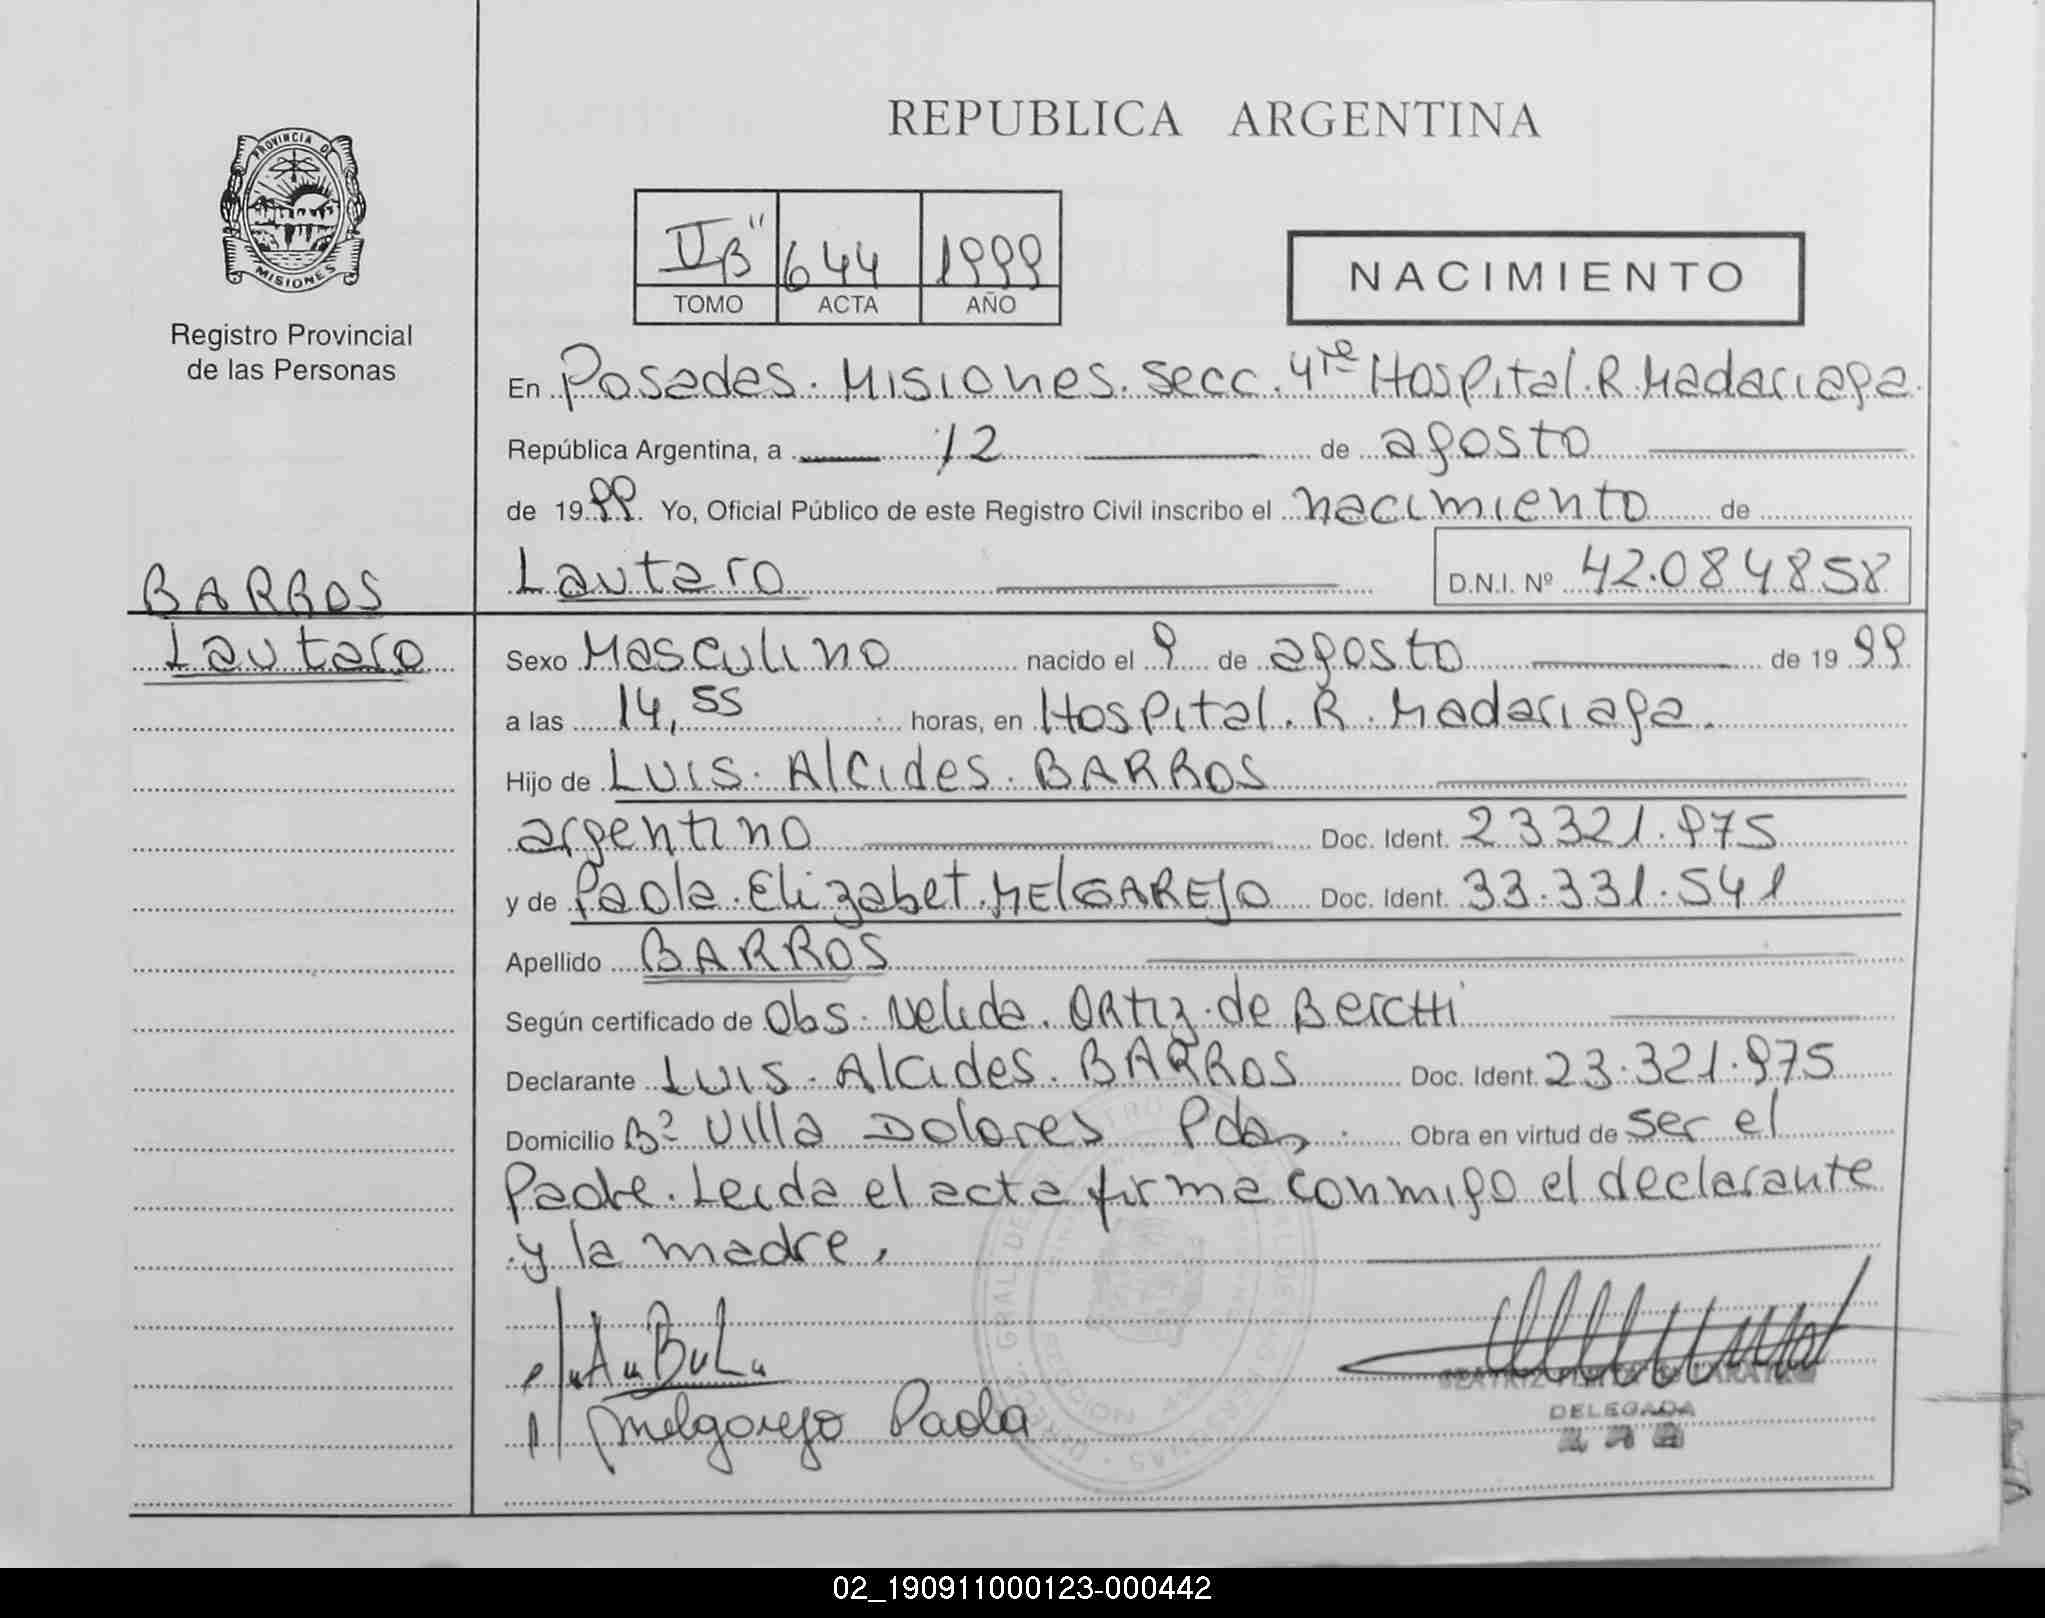 REPUBLICA ARGENTINA
PROVINCIA DE
MISIONES
Registro Provincial
de las Personas
II "B" 644 1999
TOMO ACTA AÑO
NACIMIENTO
En Posadas. Misiones. Secc. 4ta Hospital. R. Madariaga.
República Argentina, a 12 de agosto
de 1999. Yo, Oficial Público de este Registro Civil inscribo el nacimiento de
Lautaro D.N.I. Nº 42.084858
BARROS
Lautaro
Sexo Masculino nacido el 9 de agosto de 1999
a las 14,55 horas, en Hospital. R. Madariaga.
Hijo de Luis. Alcides. BARROS
argentino Doc. Ident. 23321.975
y de Paola. Elizabet. MELGAREJO Doc. Ident. 33.331.541
Apellido BARROS
Según certificado de Obs. Nelida. Ortiz. de Berchi
Declarante Luis. Alcides. BARROS Doc. Ident. 23.321.975
Domicilio Bº Villa Dolores Pdas. Obra en virtud de ser el
Padre. Leida el acta firma conmigo el declarante
y la madre.
Melgarejo Paola
DELEGADA
02_190911000123-000442